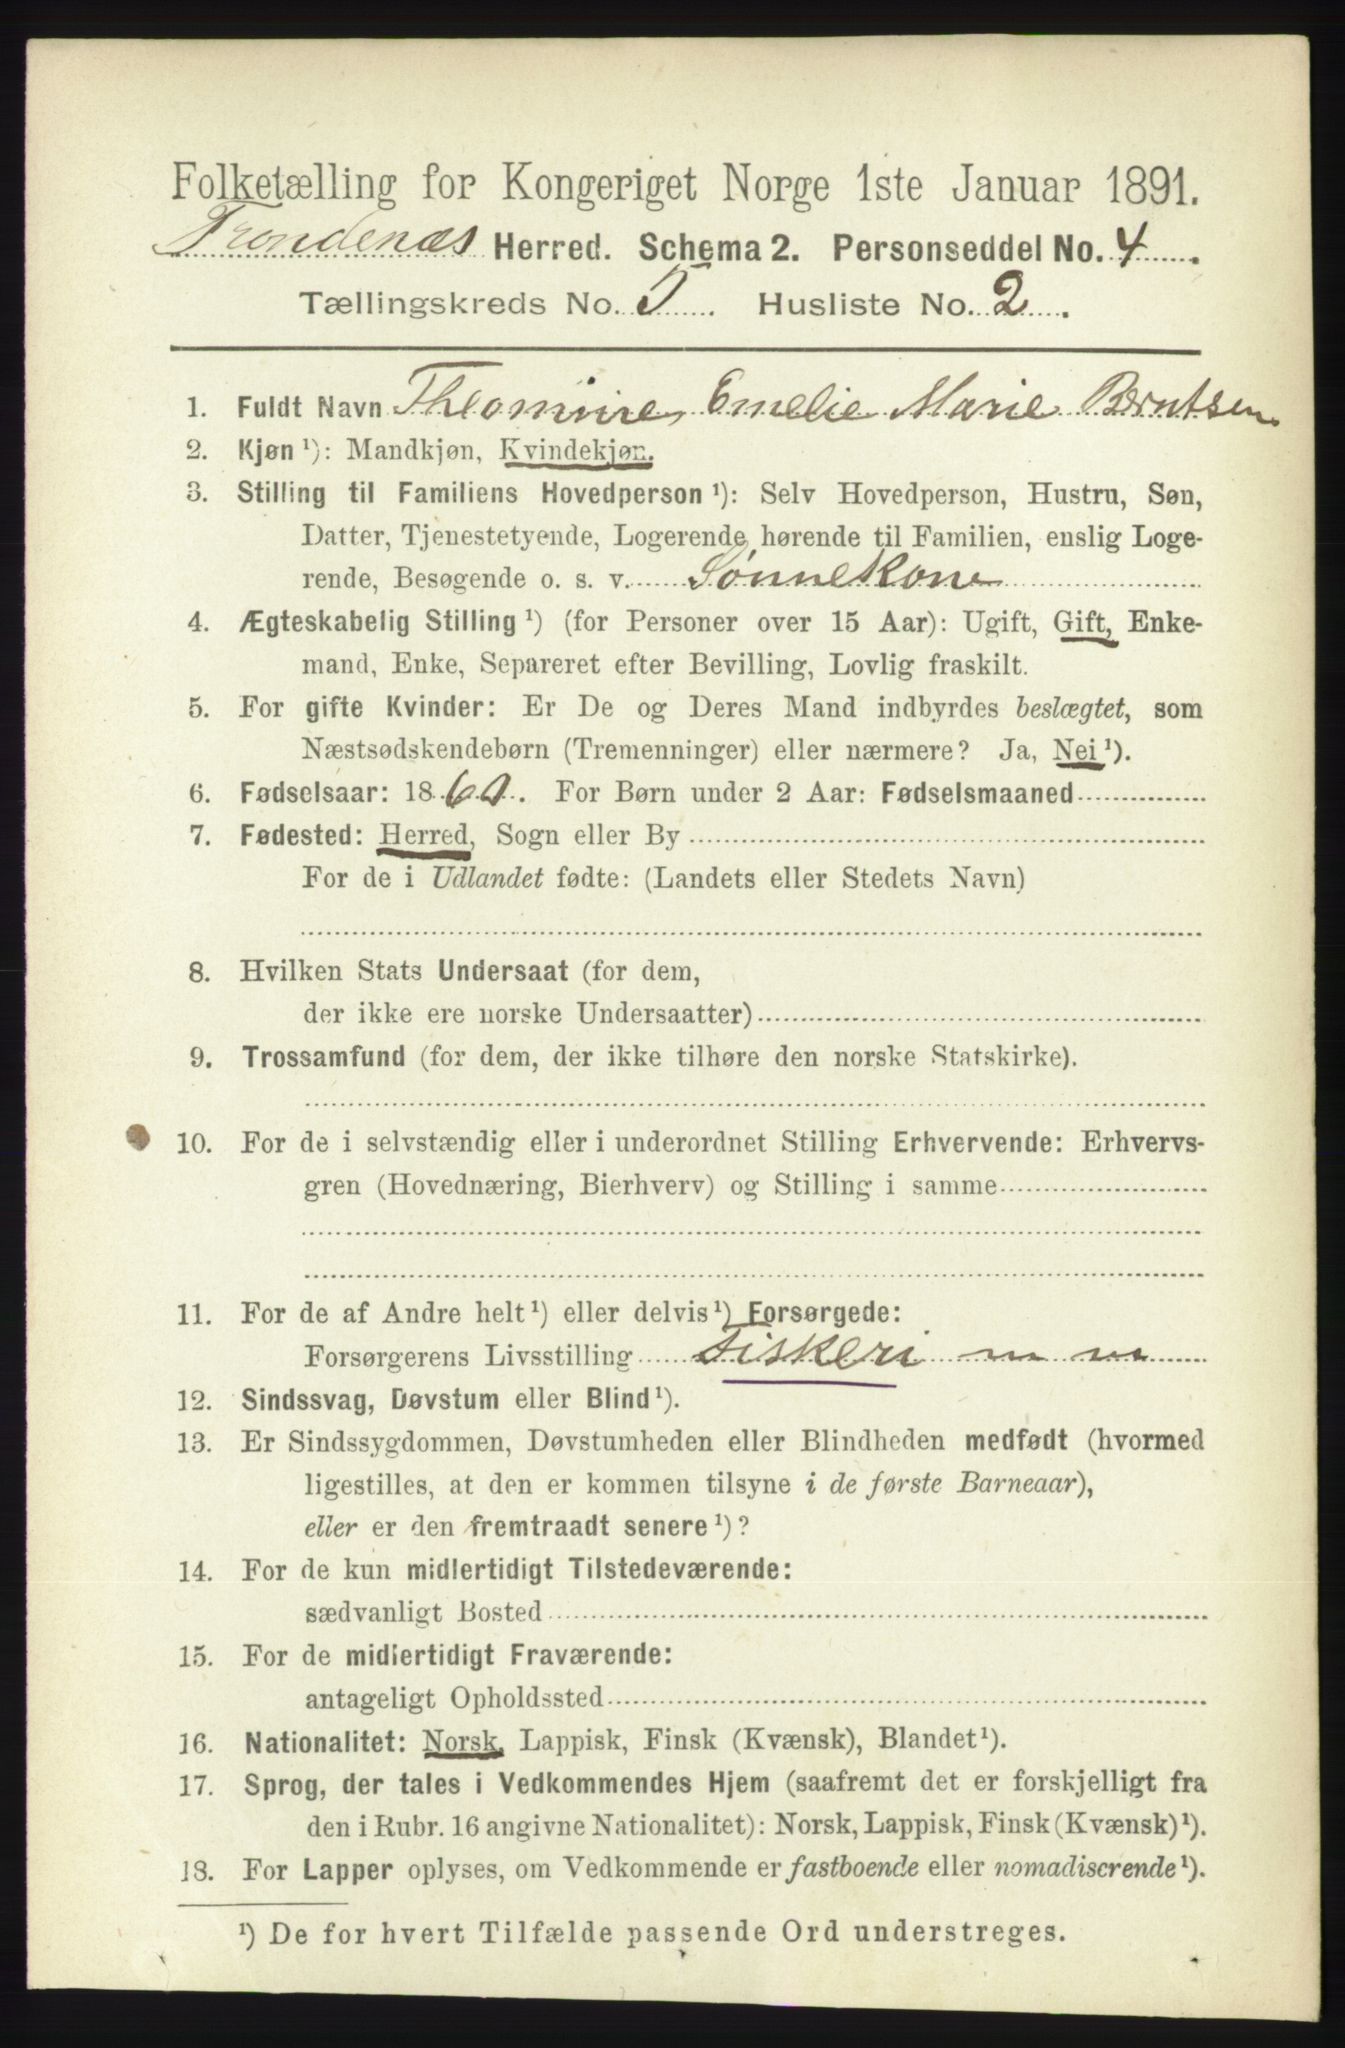 Folketælling for Kongeriget Norge 1ste Januar 1891.
Trondenæs Herred. Schema 2. Personseddel No. 4
Tællingskreds No. 5 Husliste No. 2
1. Fuldt Navn Emelie Marie Berntsen
2. Kjøn ¹): Mandkjøn, Kvindekjøn.
3. Stilling til Familiens Hovedperson ¹): Selv Hovedperson, Hustru, Søn,
Datter, Tjenestetyende, Logerende hørende til Familien, enslig Loge-
rende, Besøgende o. s. v. Sønnekone
4. Ægteskabelig Stilling ¹) (for Personer over 15 Aar): Ugift, Gift, Enke-
mand, Enke, Separeret efter Bevilling, Lovlig fraskilt.
5. For gifte Kvinder: Er De og Deres Mand indbyrdes beslægtet, som
Næstsødskendebørn (Tremenninger) eller nærmere? Ja, Nei ¹).
6. Fødselsaar: 18 . For Børn under 2 Aar: Fødselsmaaned
7. Fødested: Herred, Sogn eller By
For de i Udlandet fødte: (Landets eller Stedets Navn)
8. Hvilken Stats Undersaat (for dem,
der ikke ere norske Undersaatter)
9. Trossamfund (for dem, der ikke tilhøre den norske Statskirke).
10. For de i selvstændig eller i underordnet Stilling Erhvervende: Erhvervs-
gren (Hovednæring, Bierhverv) og Stilling i samme
11. For de af Andre helt ¹) eller delvis ¹) Forsørgede:
Forsørgerens Livsstilling Fiskeri m m
12. Sindssvag, Døvstum eller Blind ¹).
13. Er Sindssygdommen, Døvstumheden eller Blindheden medfødt (hvormed
ligestilles, at den er kommen tilsyne i de første Barneaar),
eller er den fremtraadt senere ¹)?
14. For de kun midlertidigt Tilstedeværende:
sædvanligt Bosted
15. For de midlertidigt Fraværende:
antageligt Opholdssted
16. Nationalitet: Norsk, Lappisk, Finsk (Kvænsk), Blandet ¹).
17. Sprog, der tales i Vedkommendes Hjem (saafremt det er forskjelligt fra
den i Rubr. 16 angivne Nationalitet): Norsk, Lappisk, Finsk (Kvænsk) ¹).
18. For Lapper oplyses, om Vedkommende er fastboende eller nomadiserende ¹).
¹) De for hvert Tilfælde passende Ord understreges.